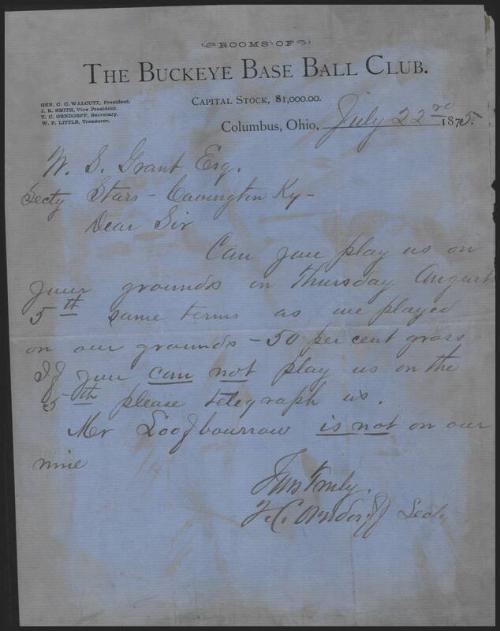 ROOMS OF
THE BUCKEYE BASE BALL CLUB.
GEN. C. C. WALCUTT, President.
J. R. SMITH, Vice President.
T. C. ORNDORFF, Secretary.
W. F. LITTLE, Treasurer.
CAPITAL STOCK, $1,000.00.
Columbus, Ohio, July 22nd 1875.
W. S. Grant Esq.
Secty Stars - Covington Ky -
Dear Sir
Can you play us on
your grounds on Thursday August
5th same terms as we played
on our grounds - 50 per cent gross
If you can not play us on the
5th please telegraph us.
Mr Loofbourrow is not on our
nine
Yours Truly.
T. C. Orndorff Secty